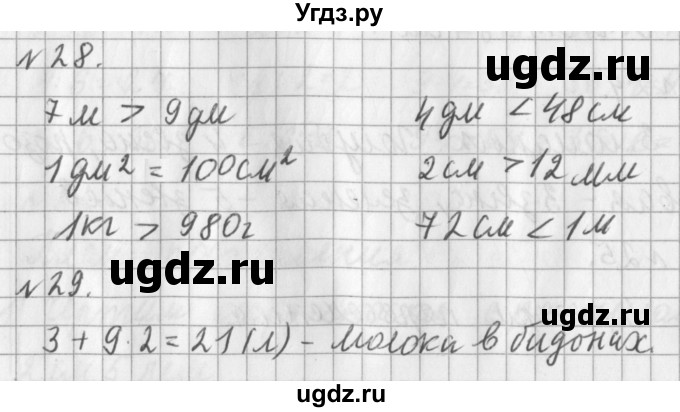 Угдз.ру
№28.
7м > 9дм 4дм < 48см
ugdz.ru
1дм² = 100см² 2см > 12мм
1кг > 980г 72см < 1м
ugdz.ru
ugdz.ru
№29.
3 + 9·2 = 21(л) – молока в бидонах.
ugdz.ru